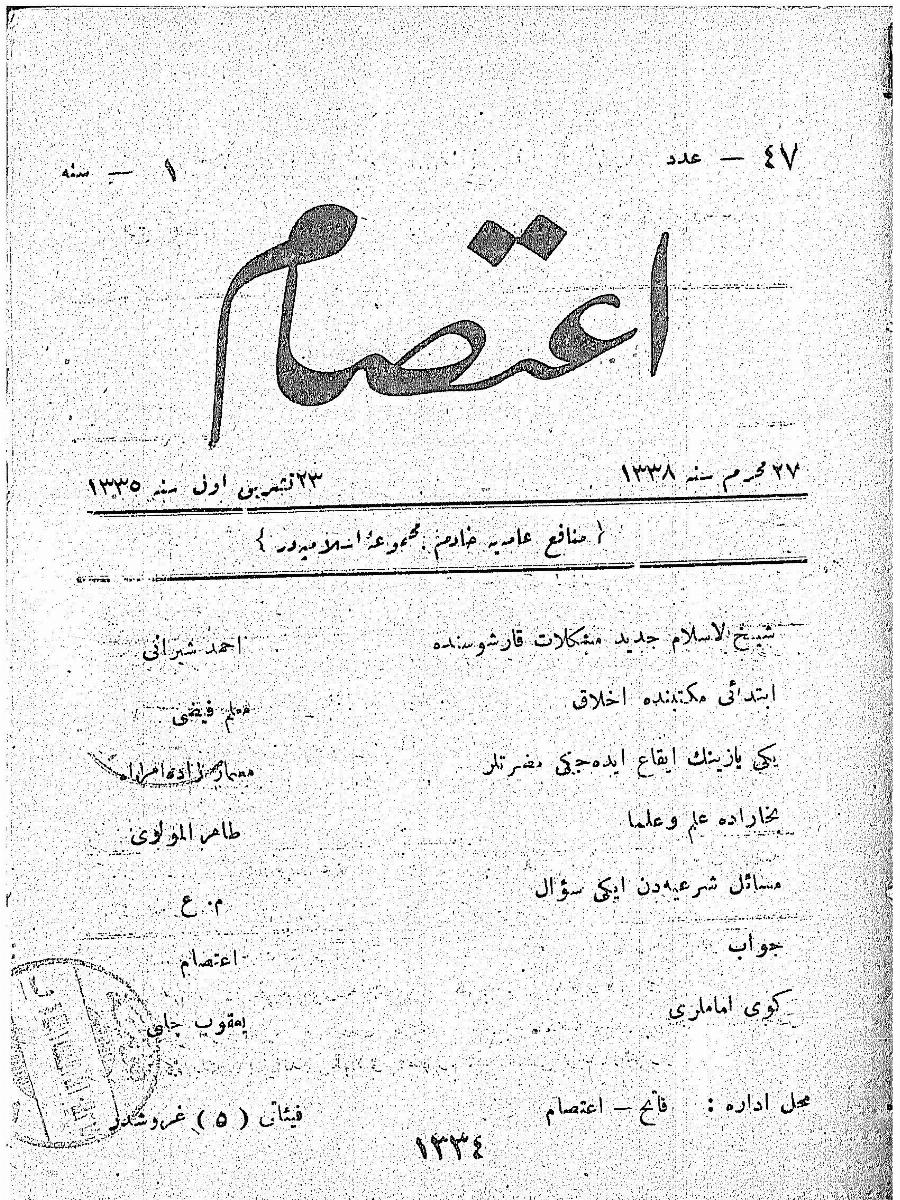 ٤٧ — عدد
١ — سنه
اعتصام
٢٧ محرم سنه ١٣٣٨
٢٣ تشرین اول سنه ١٣٣٥
{ منافع عامه‌یه خادم مجموعهٔ اسلامیه‌در }
شیخ‌الاسلام جدید مشکلات قارشوسنده احمد شیرانی
ابتدائی مکتبنده اخلاق معلم فیضی
یکی یازینك ایقاع ایده‌جکی مضرتلر معمار زاده
بخاراده علم وعلما طاهر المولوی
مسائل شرعیه‌دن ایکی سؤال م. ع
جواب اعتصام
کوی اماملری یعقوب چلبی
محل اداره : فاتح — اعتصام
فیئاتی ( ٥ ) غروشدر
١٣٣٤